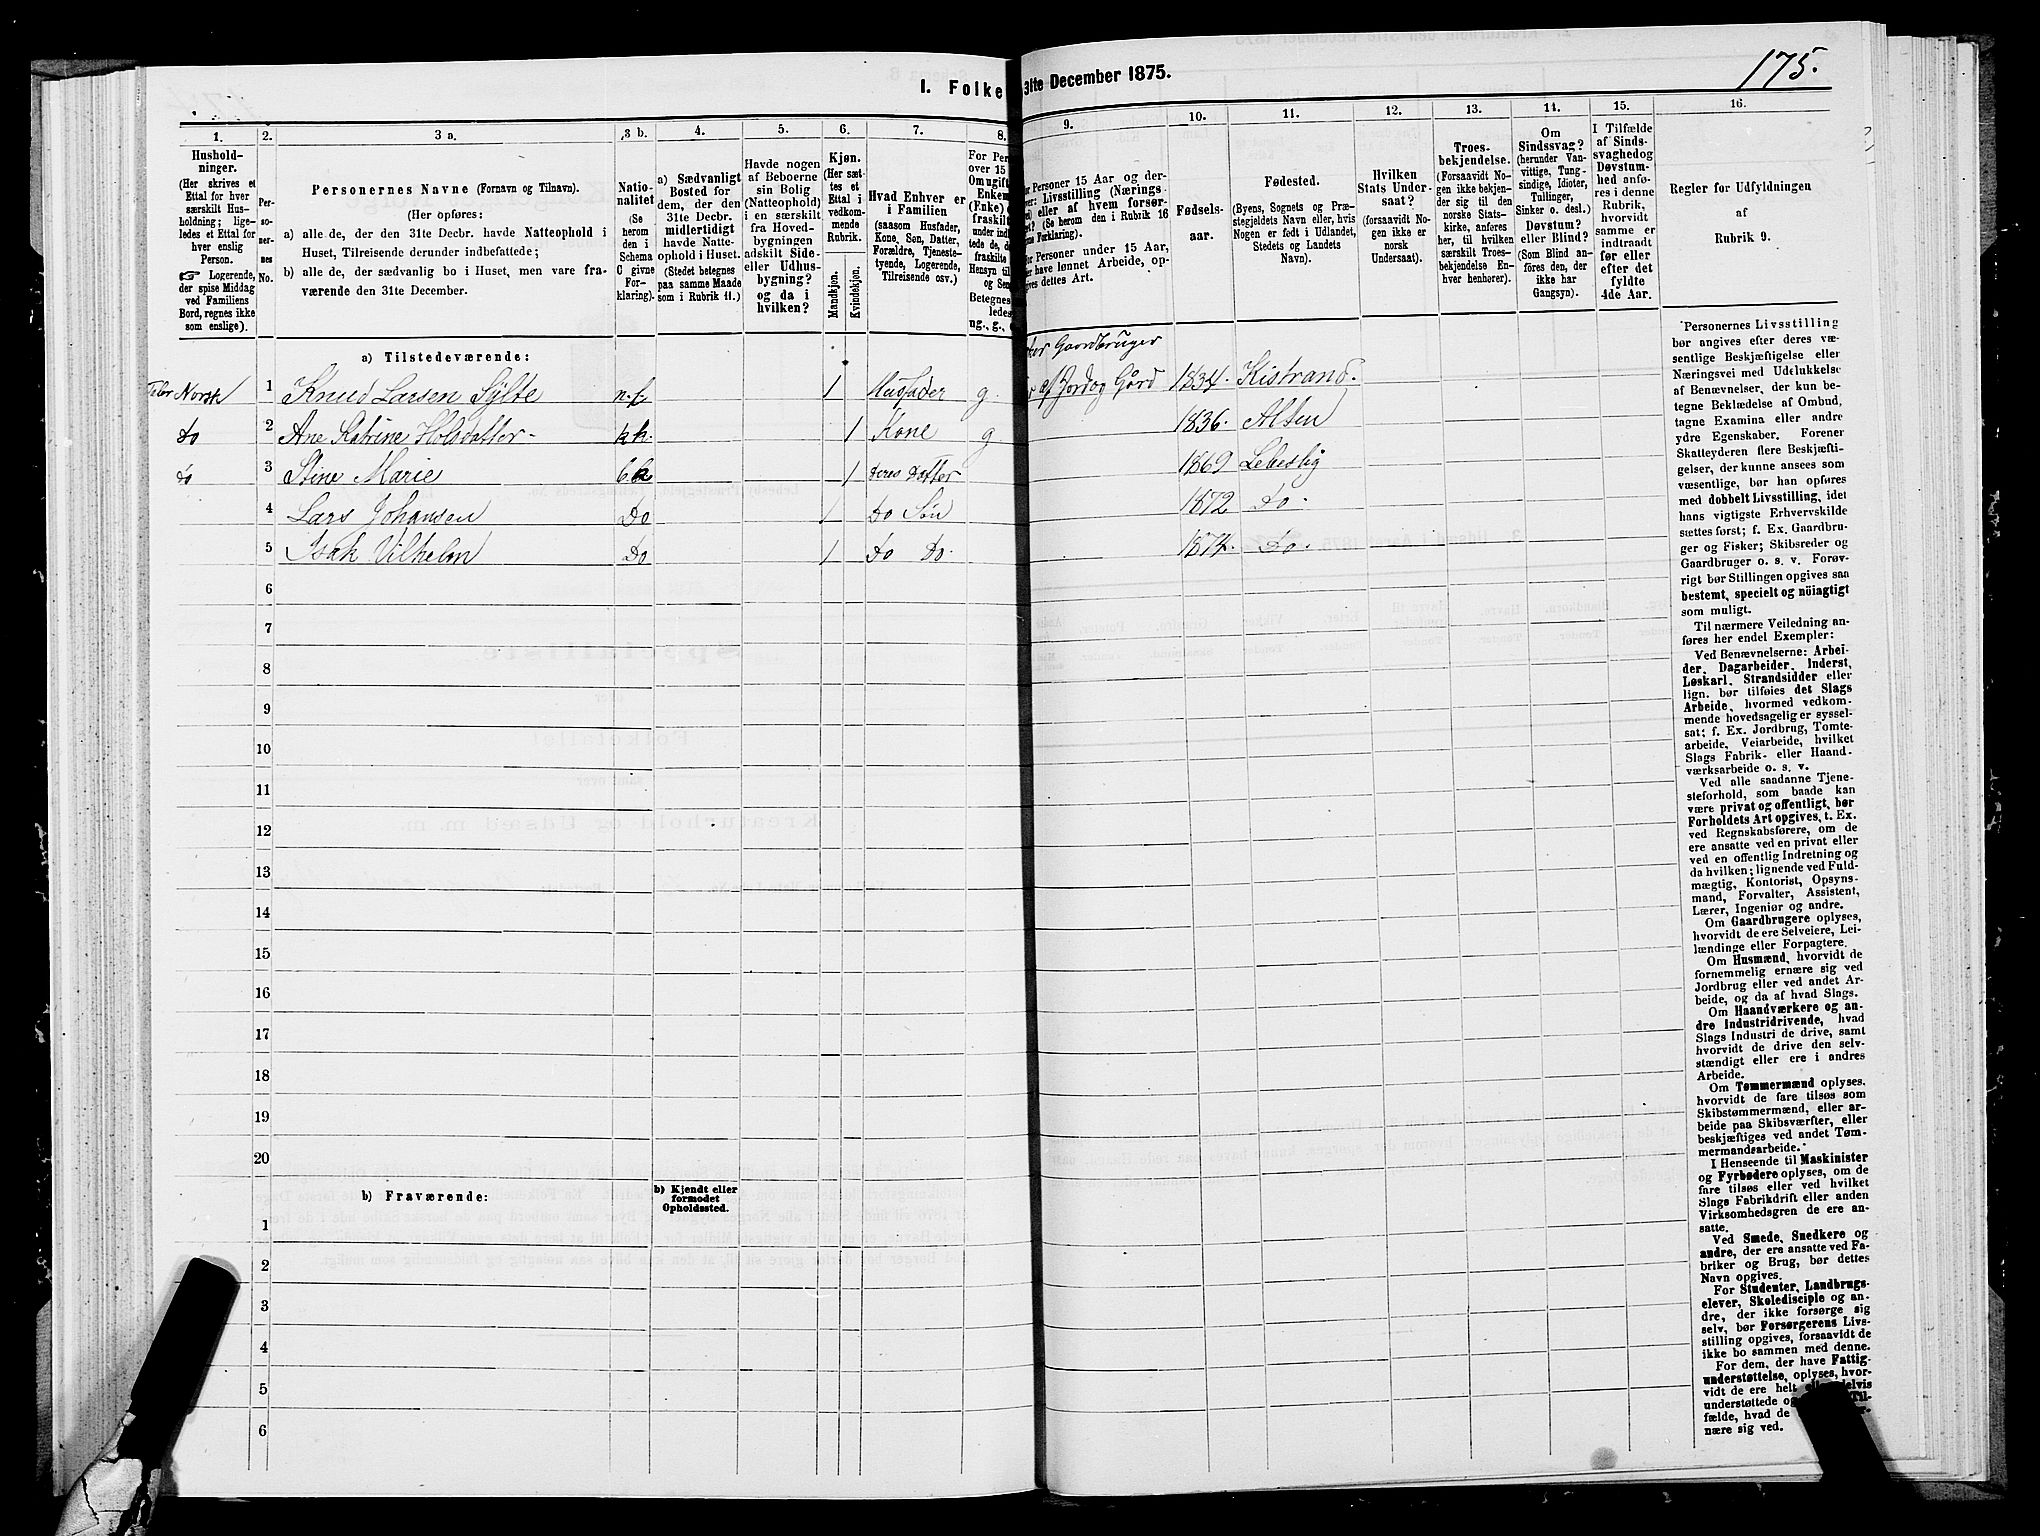 175.
I. Folke
31te December 1875.
1.
2.
3 a.
3 b.
4.
5.
6.
7.
8.
9.
10.
11.
12.
13.
14.
15.
16.
Hushold-
ninger.
(Her skrives et
Ettal for hver
særskilt Hus-
holdning; lige-
ledes et Ettal for
hver enslig
Person.
☞ Logerende,
der spise Middag
ved Familiens
Bord, regnes ikke
som enslige).
Per-
so-
ner-
nes
No.
Personernes Navne (Fornavn og Tilnavn).
(Her opføres:
a) alle de, der den 31te Decbr. havde Natteophold i
Huset, Tilreisende derunder indbefattede;
b) alle de, der sædvanlig bo i Huset, men vare fra-
værende den 31te December.
Natio-
nalitet
(Se
herom
den i
Schema
C givne
For-
klaring).
a) Sædvanligt
Bosted for
dem, der den
31te Decbr.
midlertidigt
havde Natte-
ophold i Huset.
(Stedet betegnes
paa samme Maade
som i Rubrik 11.)
Havde nogen
af Beboerne
sin Bolig
(Natteophold)
i en særskilt
fra Hoved-
bygningen
adskilt Side-
eller Udhus-
bygning?
og da i
hvilken?
Kjøn.
(Her sæt-
tes et
Ettal i
vedkom-
mende
Rubrik.
Mandkjøn.
Kvindekjøn.
Hvad Enhver er
i Familien
(saasom Husfader,
Kone, Søn, Datter,
Forældre, Tjeneste-
tyende, Logerende,
Tilreisende osv.)
For Per
over 15
Om ugift
Enken
(Enke)
fraskilt
under indt
tede de, de
fraskilte
Hensyn til
og Sen
Betegnes
ledes
ng., g.,
or Personer 15 Aar og der-
ver: Livsstilling (Nærings-
ei) eller af hvem forsør-
get? (Se herom den i Rubrik 16
ne Forklaring).
or Personer under 15 Aar,
er have lønnet Arbeide, op-
gives dettes Art.
Fødsels-
aar.
Fødested.
(Byens, Sognets og Præ-
stegjeldets Navn eller, hvis
Nogen er født i Udlandet,
Stedets og Landets
Navn).
Hvilken
Stats Under-
saat?
(forsaavidt No-
gen ikke er
norsk
Undersaat).
Troes-
bekjendelse.
(Forsaavidt No-
gen ikke bekjen-
der sig til den
norske Stats-
kirke, anføres
her, til hvilken
særskilt Troes-
bekjendelse En-
hver henhører).
Om
Sindssvag?
(herunder Van-
vittige, Tung-
sindige, Idioter,
Tullinger,
Sinker o. desl.)
Døvstum?
eller Blind?
(Som Blind an-
føres den, der
ikke har
Gangsyn).
I Tilfælde
af Sinds-
svaghed og
Døvstum-
hed anfø-
res i denne
Rubrik,
hvorvidt
samme er
indtraadt
før eller
efter det
fyldte
4de Aar.
Regler for Udfyldningen
af
Rubrik 9.
a) Tilstedeværende:
Gaardbruger
Norsk 1 Knud Larsen Sylte n. f. 1 Husfader g. af Jord og Gård 1834. Kistrand.
do 2 Ane Katrine Holsdatter - k k. 1 Kone g 1836. Alten
do 3 Stine Marie bk 1 deres datter 1869 Lebesby
4 Lars Johansen Do 1 Do Søn 1872 Do.
5 Isak Vilhelm Do 1 Do Do. 1874. Do.
6
7
8
9
10
11
12
13
14
15
16
17
18
19
20
b) Fraværende:
b) Kjendt eller
formodet
Opholdssted.
1
2
3
4
5
6
Personernes Livsstilling
bør angives efter deres væ-
sentlige Beskjæftigelse eller
Næringsvei med Udelukkelse
af Benævnelser, der kun be-
tegne Beklædelse af Ombud,
tagne Examina eller andre
ydre Egenskaber. Forener
Skatteyderen flere Beskjæfti-
gelser, der kunne ansees som
væsentlige, bør han opføres
med dobbelt Livsstilling, idet
hans vigtigste Erhvervskilde
sættes først; f. Ex. Gaardbru-
ger og Fisker; Skibsreder og
Gaardbruger o. s. v. Forøv-
rigt bør Stillingen opgives saa
bestemt, specielt og nøiagtigt
som muligt.
Til nærmere Veiledning an-
føres her endel Exempler:
Ved Benævnelserne: Arbei-
der, Dagarbeider, Inderst,
Løskarl, Strandsidder eller
lign. bør tilføies det Slags
Arbeide, hvormed vedkom-
mende hovedsagelig er syssel-
sat; f. Ex. Jordbrug, Tomte-
arbeide, Veiarbeide, hvilket
Slags Fabrik- eller Haand-
værksarbeide o. s. v.
Ved alle saadanne Tjene-
steforhold, som baade kan
være privat og offentligt, bør
Forholdets Art opgives, t. Ex.
ved Regnskabsførere, om de
ere ansatte ved en privat eller
ved en offentlig Indretning og
da hvilken; lignende ved Fuld-
mægtig, Kontorist, Opsyns-
mand, Forvalter, Assistent,
Lærer, Ingeniør og andre.
Om Gaardbrugere oplyses,
hvorvidt de ere Selveiere, Lei-
lændinge eller Forpagtere.
Om Husmænd, hvorvidt de
fornemmelig ernære sig ved
Jordbrug eller ved andet Ar-
beide, og da af hvad Slags.
Om Haandværkere og an-
dre Industridrivende, hvad
Slags Industri de drive, samt
hvorvidt de drive den selv-
stændigt eller ere i andres
Arbeide.
Om Tømmermænd oplyses,
hvorvidt de fare tilsøs som
Skibstømmermænd, eller ar-
beide paa Skibsværfter, eller
beskjæftiges ved andet Tøm-
mermandsarbeide.
I Henseende til Maskinister
og Fyrbødere oplyses, om de
fare tilsøs eller ved hvilket
Slags Fabrikdrift eller anden
Virksomhedsgren de ere an-
satte.
Ved Smede, Snedkere og
andre, der ere ansatte ved Fa-
briker og Brug, bør dettes
Navn opgives.
For Studenter, Landbrugs-
elever, Skoledisciple og an-
dre, der ikke forsørge sig
selv, bør Forsørgerens Livs-
stilling opgives, forsaavidt de
ikke bo sammen med denne.
For dem, der have Fattig-
understøttelse, oplyses, hvor-
vidt de ere helt eller delvis
understøttede og Til-
fælde, hvad de
nære sig ved.